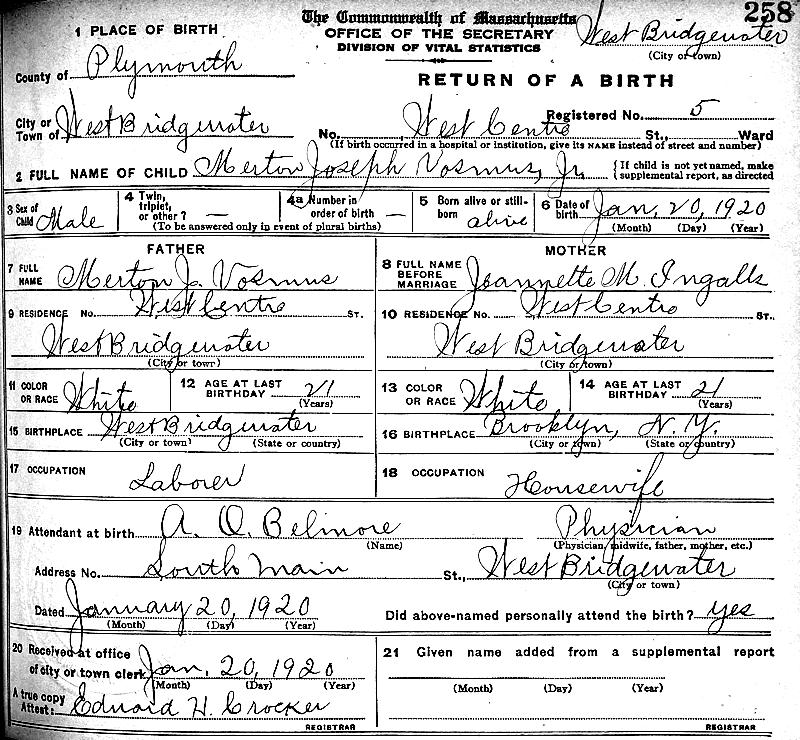 258
The Commonwealth of Massachusetts
OFFICE OF THE SECRETARY
DIVISION OF VITAL STATISTICS
West Bridgewater
(City or town)
1 PLACE OF BIRTH
County of Plymouth
RETURN OF A BIRTH
City or Town of West Bridgewater
Registered No. 5
No. West Centre St., Ward
(If birth occurred in a hospital or institution, give its NAME instead of street and number)
2 FULL NAME OF CHILD Merton Joseph Vosmus, Jr. { If child is not yet named, make supplemental report, as directed
3 Sex of Child Male
4 Twin, triplet, or other? —
4a Number in order of birth —
(To be answered only in event of plural births)
5 Born alive or still-born alive
6 Date of birth Jan, 20, 1920
(Month) (Day) (Year)
FATHER
7 FULL NAME Merton J. Vosmus
9 RESIDENCE No. West Centre ST.
West Bridgewater
(City or town)
11 COLOR OR RACE White
12 AGE AT LAST BIRTHDAY 21
(Years)
15 BIRTHPLACE West Bridgewater
(City or town) (State or country)
17 OCCUPATION
Laborer
MOTHER
8 FULL NAME BEFORE MARRIAGE Jeannette M. Ingalls
10 RESIDENCE No. West Centre ST.
West Bridgewater
(City or town)
13 COLOR OR RACE White
14 AGE AT LAST BIRTHDAY 21
(Years)
16 BIRTHPLACE Brooklyn, N.Y.
(City or town) (State or country)
18 OCCUPATION
Housewife
19 Attendant at birth A. O. Belmore Physician
(Name) (Physician, midwife, father, mother, etc.)
Address No. South Main St., West Bridgewater
(City or town)
Dated January 20, 1920 Did above-named personally attend the birth? yes
(Month) (Day) (Year)
20 Received at office of city or town clerk Jan. 20, 1920
(Month) (Day) (Year)
A true copy Attest: Edward H. Crocker
REGISTRAR
21 Given name added from a supplemental report
(Month) (Day) (Year)
REGISTRAR